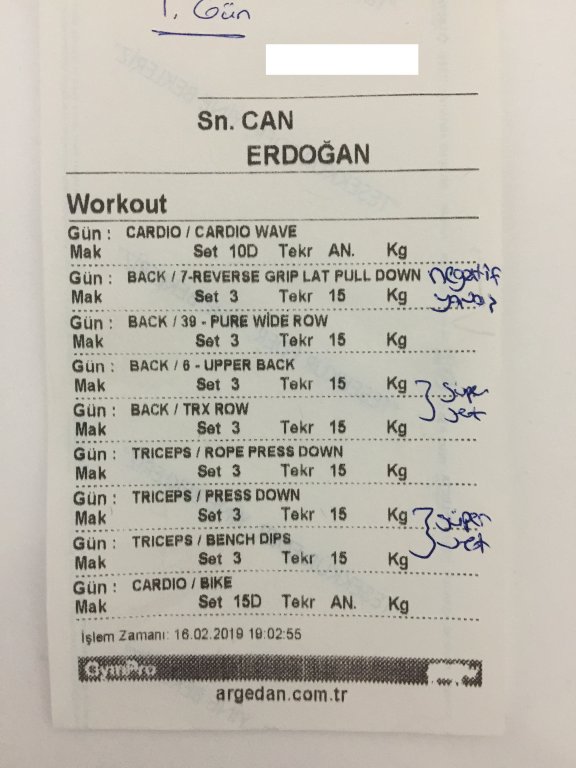 1. Gün
Sn. CAN
ERDOĞAN
Workout
Gün : CARDIO / CARDIO WAVE
Mak Set 10D Tekr AN. Kg
Gün : BACK / 7-REVERSE GRIP LAT PULL DOWN negatif
Mak Set 3 Tekr 15 Kg yavaş
Gün : BACK / 39 - PURE WIDE ROW
Mak Set 3 Tekr 15 Kg
Gün : BACK / 6 - UPPER BACK
Mak Set 3 Tekr 15 Kg süper
Gün : BACK / TRX ROW set
Mak Set 3 Tekr 15 Kg
Gün : TRICEPS / ROPE PRESS DOWN
Mak Set 3 Tekr 15 Kg
Gün : TRICEPS / PRESS DOWN
Mak Set 3 Tekr 15 Kg süper
Gün : TRICEPS / BENCH DIPS set
Mak Set 3 Tekr 15 Kg
Gün : CARDIO / BIKE
Mak Set 15D Tekr AN. Kg
İşlem Zamanı: 16.02.2019 19:02:55
GymPro
argedan.com.tr